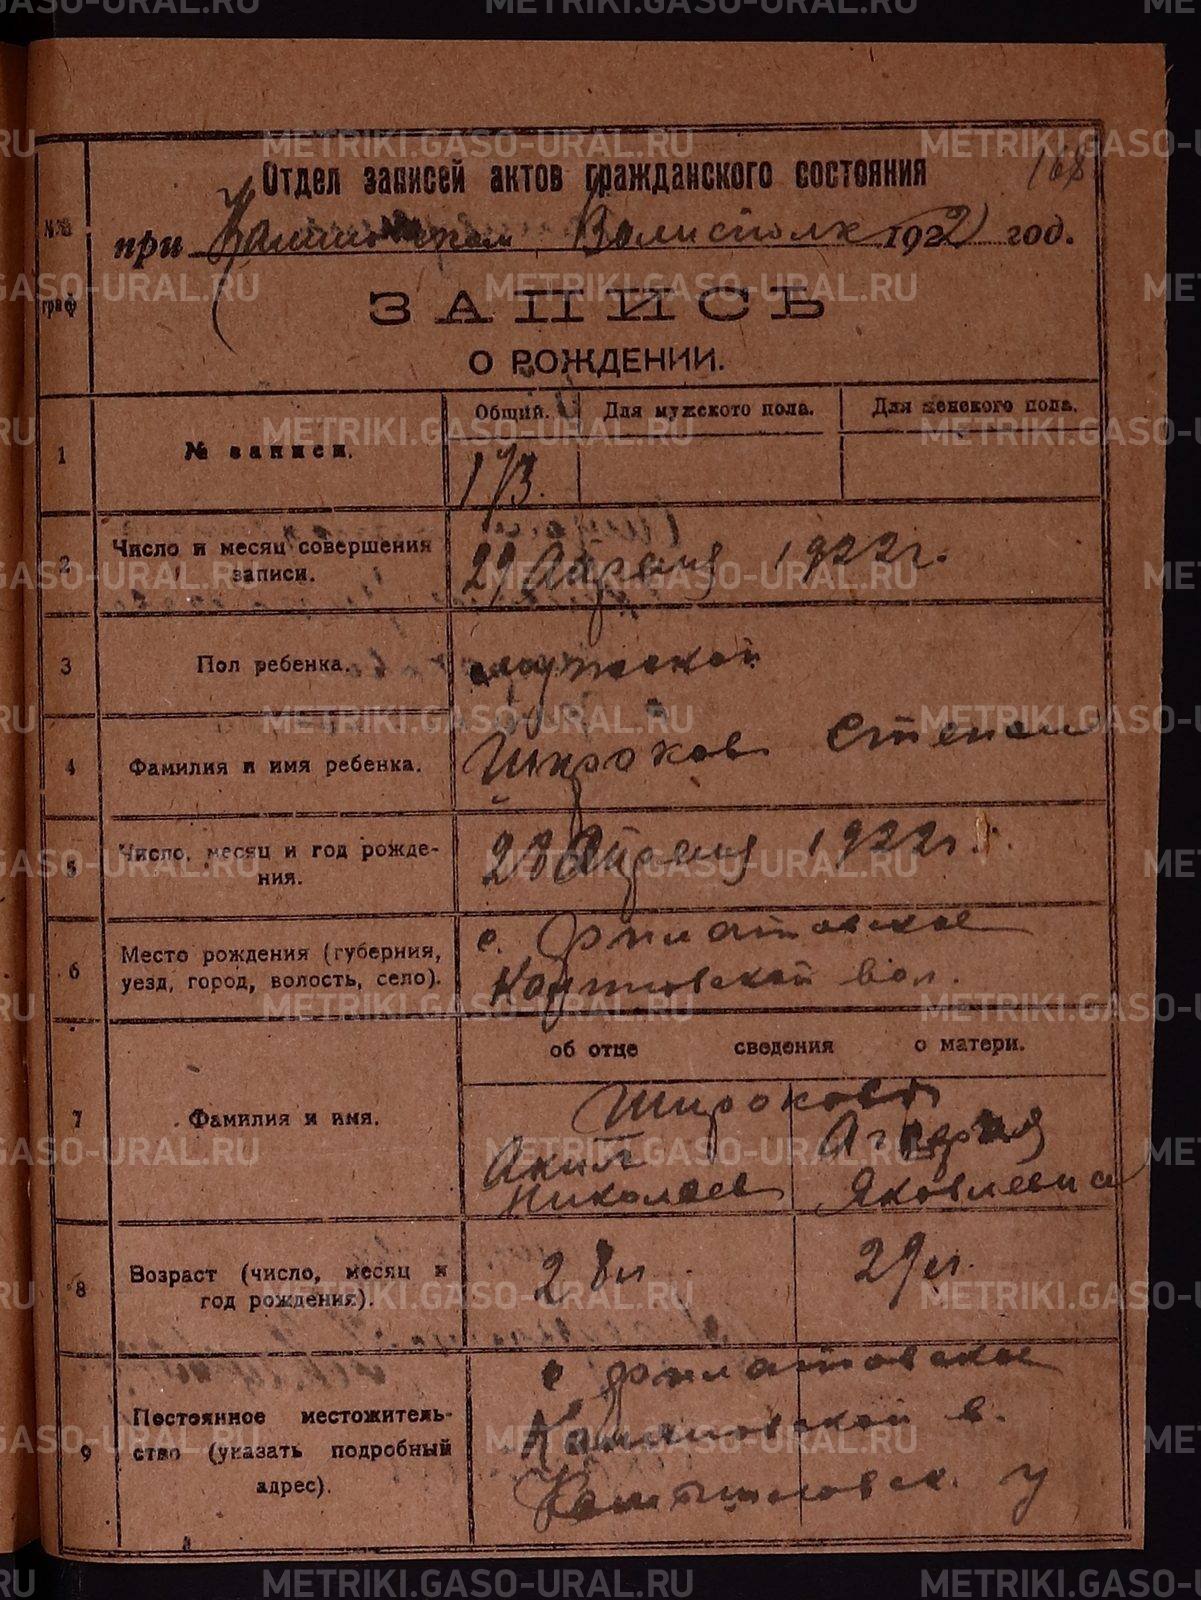 METRIKI.GASO-URAL.RU
168
Отдел записей актов гражданского состояния
при Волисполк 1922 год.
№№
граф
ЗАПИСЬ
О РОЖДЕНИИ.
Общий. Для мужского пола. Для женского пола.
1 № записи. 173.
2 Число и месяц совершения 29 Апреля 1922 г.
записи.
3 Пол ребенка. мужской
4 Фамилия и имя ребенка. Широков Степан
5 Число, месяц и год рожде- 28 Апреля 1922 г.
ния.
6 Место рождения (губерния, с. Филатовское
уезд, город, волость, село). вол.
об отце сведения о матери.
Широковы
7 Фамилия и имя. Акил
Николаев Яковлевна
8 Возраст (число, месяц и 28 л. 29 л.
год рождения).
с Филатовское
9 Постоянное местожитель- в.
ство (указать подробный
адрес). у